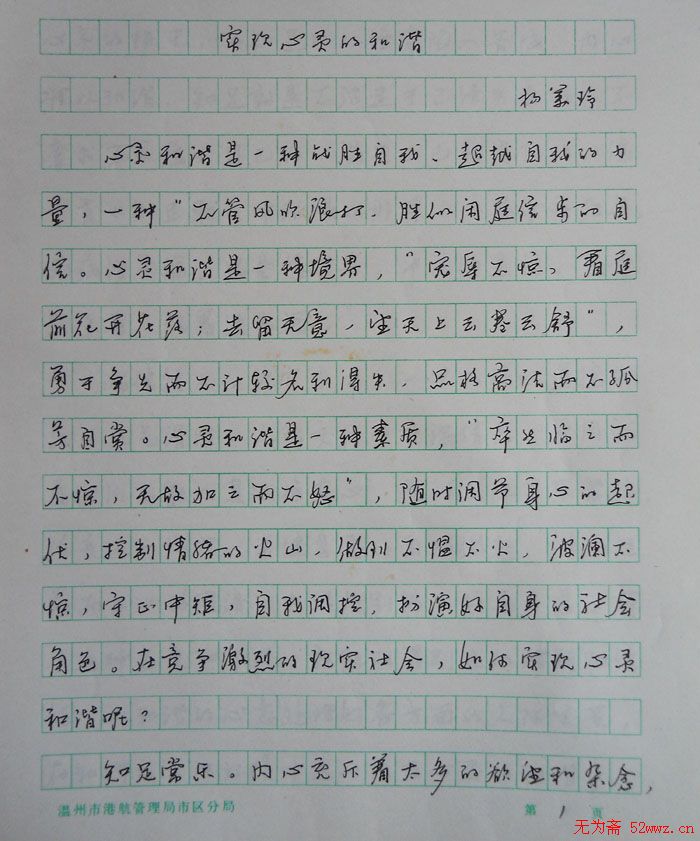 实现心灵的和谐
杨
心灵和谐是一种战胜自我、超越自我的力
量，一种“不管风吹浪打，胜似闲庭信步的自
信。心灵和谐是一种境界，“宠辱不惊，看庭
前花开花落；去留无意，望天上云卷云舒”，
勇于争先而不计较名利得失，品格高洁而不孤
芳自赏。心灵和谐是一种素质，“卒然临之而
不惊，无故加之而不怒”，随时调节身心的起
伏，控制情绪的火山，做到不愠不火，波澜不
惊，守正中矩，自我调控，扮演好自身的社会
角色。在竞争激烈的现实社会，如何实现心灵
和谐呢？
知足常乐。内心充斥着太多的欲望和杂念，
温州市港航管理局市区分局 第1页
无为斋 52wwz.cn